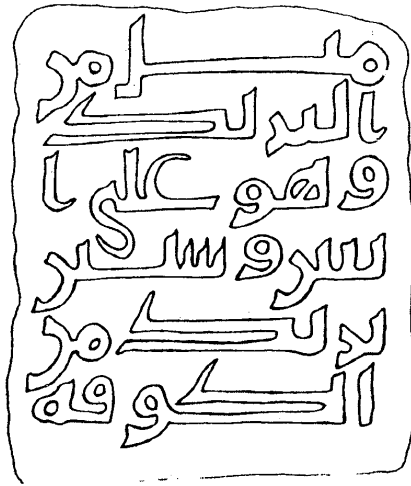 ميل من
البريد
وهو على ا
ثنين وستين
بريد من
الكوفه